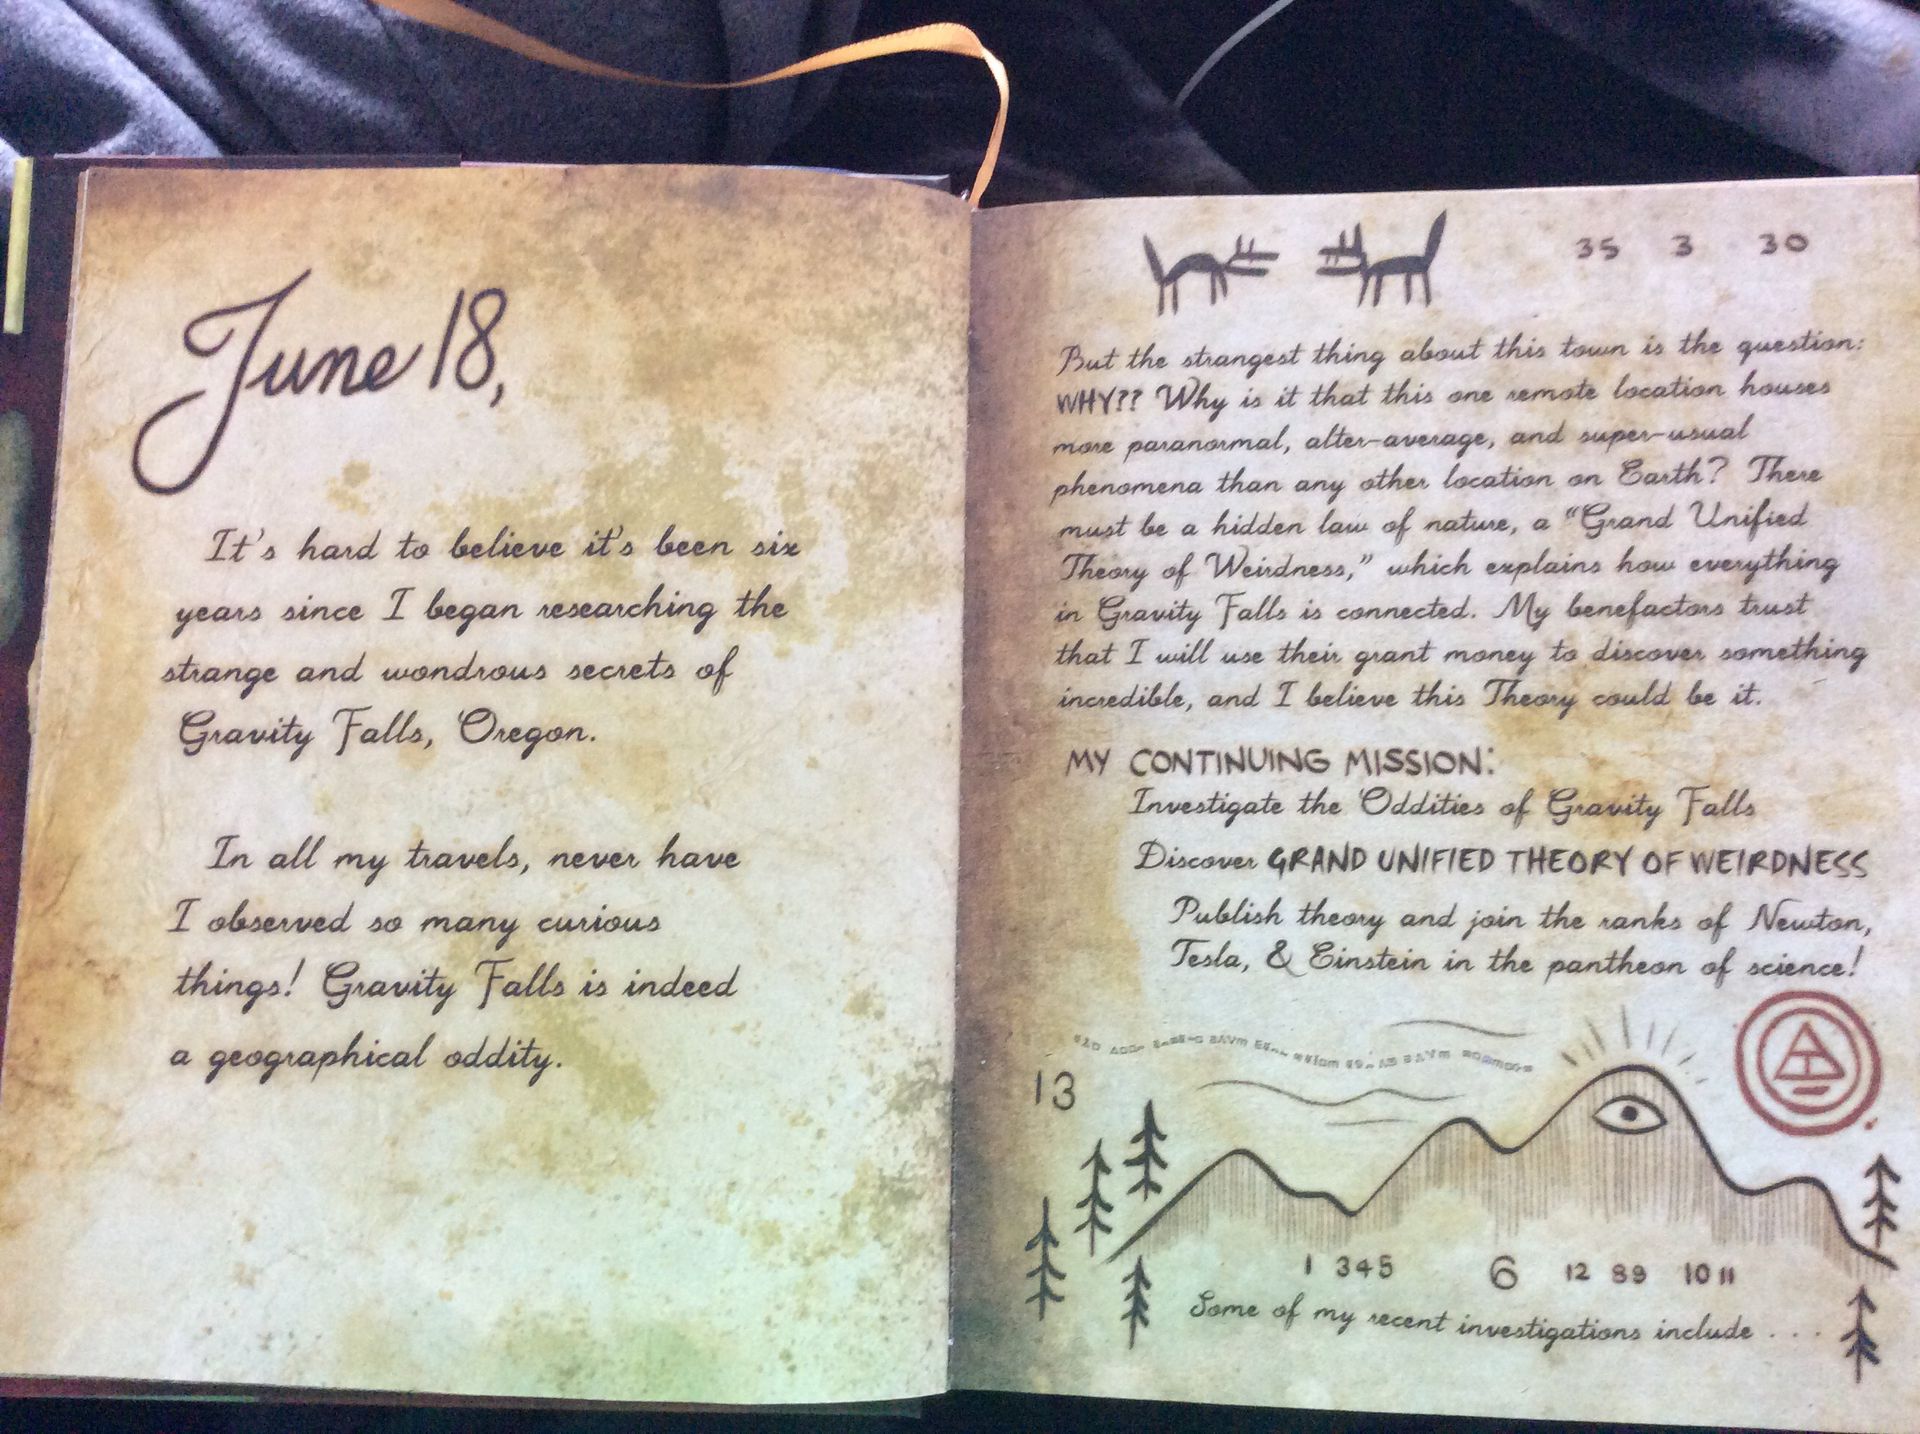 June 18,
It's hard to believe it's been six
years since I began researching the
strange and wondrous secrets of
Gravity Falls, Oregon.
In all my travels, never have
I observed so many curious
things! Gravity Falls is indeed
a geographical oddity.
35 3 30
But the strangest thing about this town is the question:
WHY?? Why is it that this one remote location houses
more paranormal, alter-average, and super-usual
phenomena than any other location on Earth? There
must be a hidden law of nature, a "Grand Unified
Theory of Weirdness," which explains how everything
in Gravity Falls is connected. My benefactors trust
that I will use their grant money to discover something
incredible, and I believe this Theory could be it.
MY CONTINUING MISSION:
Investigate the Oddities of Gravity Falls
Discover GRAND UNIFIED THEORY OF WEIRDNESS
Publish theory and join the ranks of Newton,
Tesla, & Einstein in the pantheon of science!
13
1 345 6 12 89 10 11
Some of my recent investigations include . . .